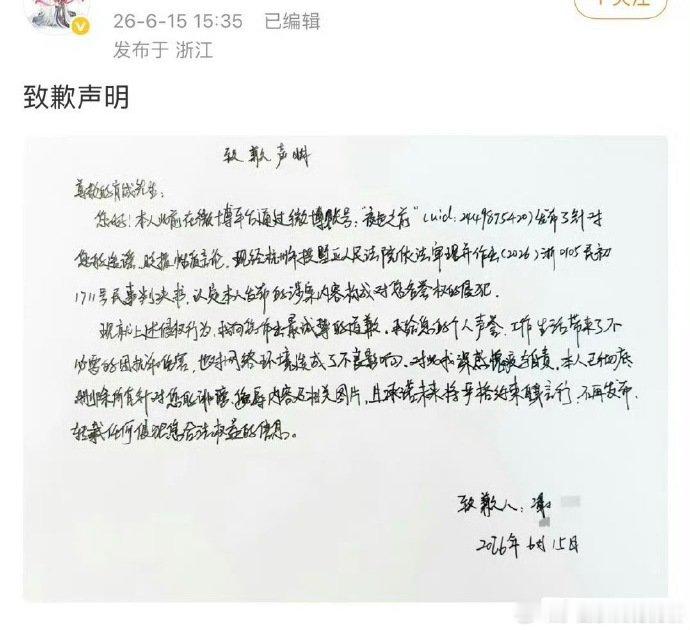 26-6-15 15:35 已编辑
发布于 浙江
关注
致歉声明
致歉声明
尊敬的肖战先生：
您好！本人此前在微博平台通过微博账号："夜拍之前"（uid:2449875420）发布了针对
您的造谣、贬损性质言论。现经杭州市拱墅区人民法院依法审理并作出（2026）浙0105民初
1711号民事判决书，认定本人发布的涉案内容构成对您名誉权的侵犯。
现就上述侵权行为，我向您作出最诚挚的道歉。我给您的个人声誉、工作生活带来了不
必要的困扰和伤害，也对网络环境造成了不良影响，对此我深感愧疚与自责。本人已彻底
删除所有针对您的诽谤、侮辱内容及相关图片，且承诺未来将严格约束自身言行，不再发布、
转载任何侵犯您合法权益的信息。
致歉人：
2026年6月15日